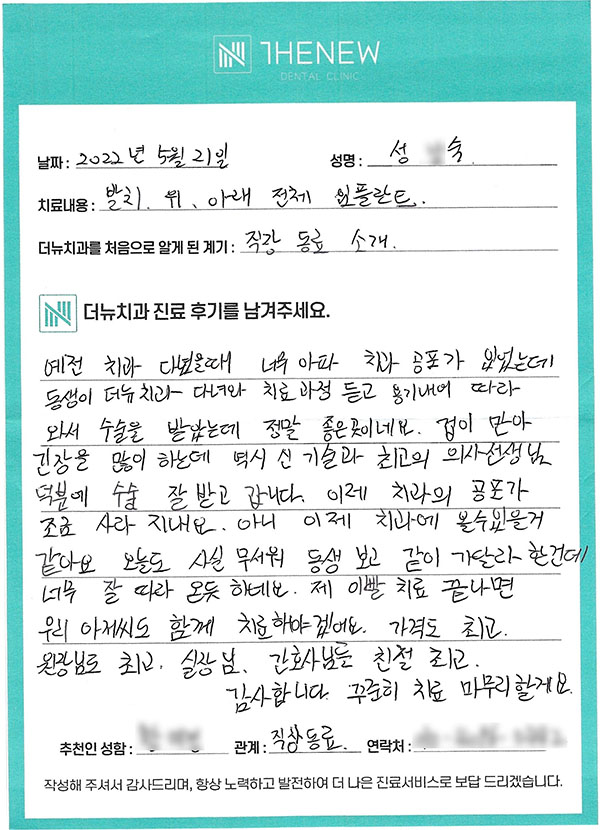 THENEW
DENTAL CLINIC
날짜 : 2022년 5월 21일 성명 : 성 숙
치료내용 : 발치. 위、아래 전체 임플란트.
더뉴치과를 처음으로 알게 된 계기 : 직장 동료 소개.
더뉴치과 진료 후기를 남겨주세요.
예전 치과 다녔을때 너무 아파 치과 공포가 있었는데
동생이 더뉴치과 다녀와 치료과정 듣고 용기내어 따라
와서 수술을 받았는데 정말 좋은곳이네요. 겁이 많아
긴장을 많이 하는데 역시 신 기술과 최고의 의사선생님
덕분에 수술 잘 받고 갑니다. 이제 치과의 공포가
조금 사라 지내요. 아니 이제 치과에 올수있을거
같아요 오늘도 사실 무서워 동생 보고 같이 가달라 한건데
너무 잘 따라 온듯 하네요. 제 이빨 치료 끝나면
우리 아저씨도 함께 치료하야겠어요. 가격도 최고.
원장님도 최고. 실장님、간호사님들 친절 최고.
감사합니다. 꾸준히 치료 마무리할게요.
추천인 성함 : 관계 : 직장동료. 연락처 :
작성해 주셔서 감사드리며, 항상 노력하고 발전하여 더 나은 진료서비스로 보답 드리겠습니다.